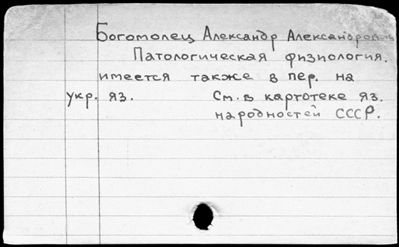 Богомолец Александр Александрович
Патологическая физиология.
имеется также в пер. на
укр. яз. См. в картотеке яз.
народностей СССР.